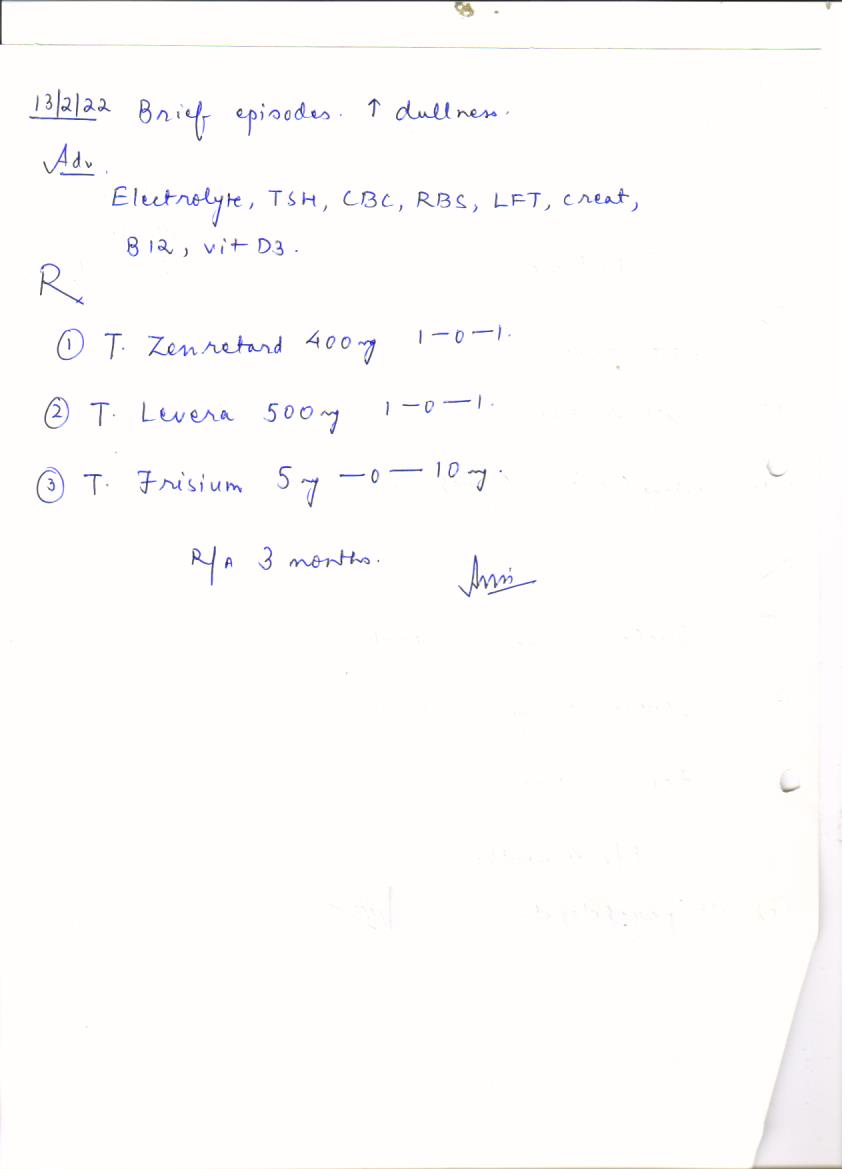 13/2/22 Brief episodes. ↑ dullness.
Adv.
Electrolyte, TSH, CBC, RBS, LFT, creat,
B12, vit D3.
Rx
① T. Zenretard 400mg 1-0-1.
② T. Levera 500mg 1-0-1.
③ T. Frisium 5mg -0- 10mg.
R/A 3 months.